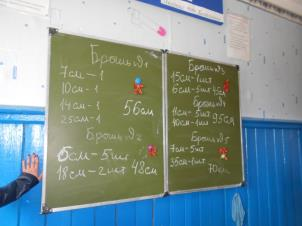 Брошь №1
7см-1
10см-1
14см-1
25см-1
56см
Брошь №2
6см-5шт
18см-2шт 48см
Брошь №3
15см-1шт
6см-5шт 45см
Брошь №4
11см-5шт
10см-1шт 95см
Брошь №5
7см-5шт
35см-1шт
70см